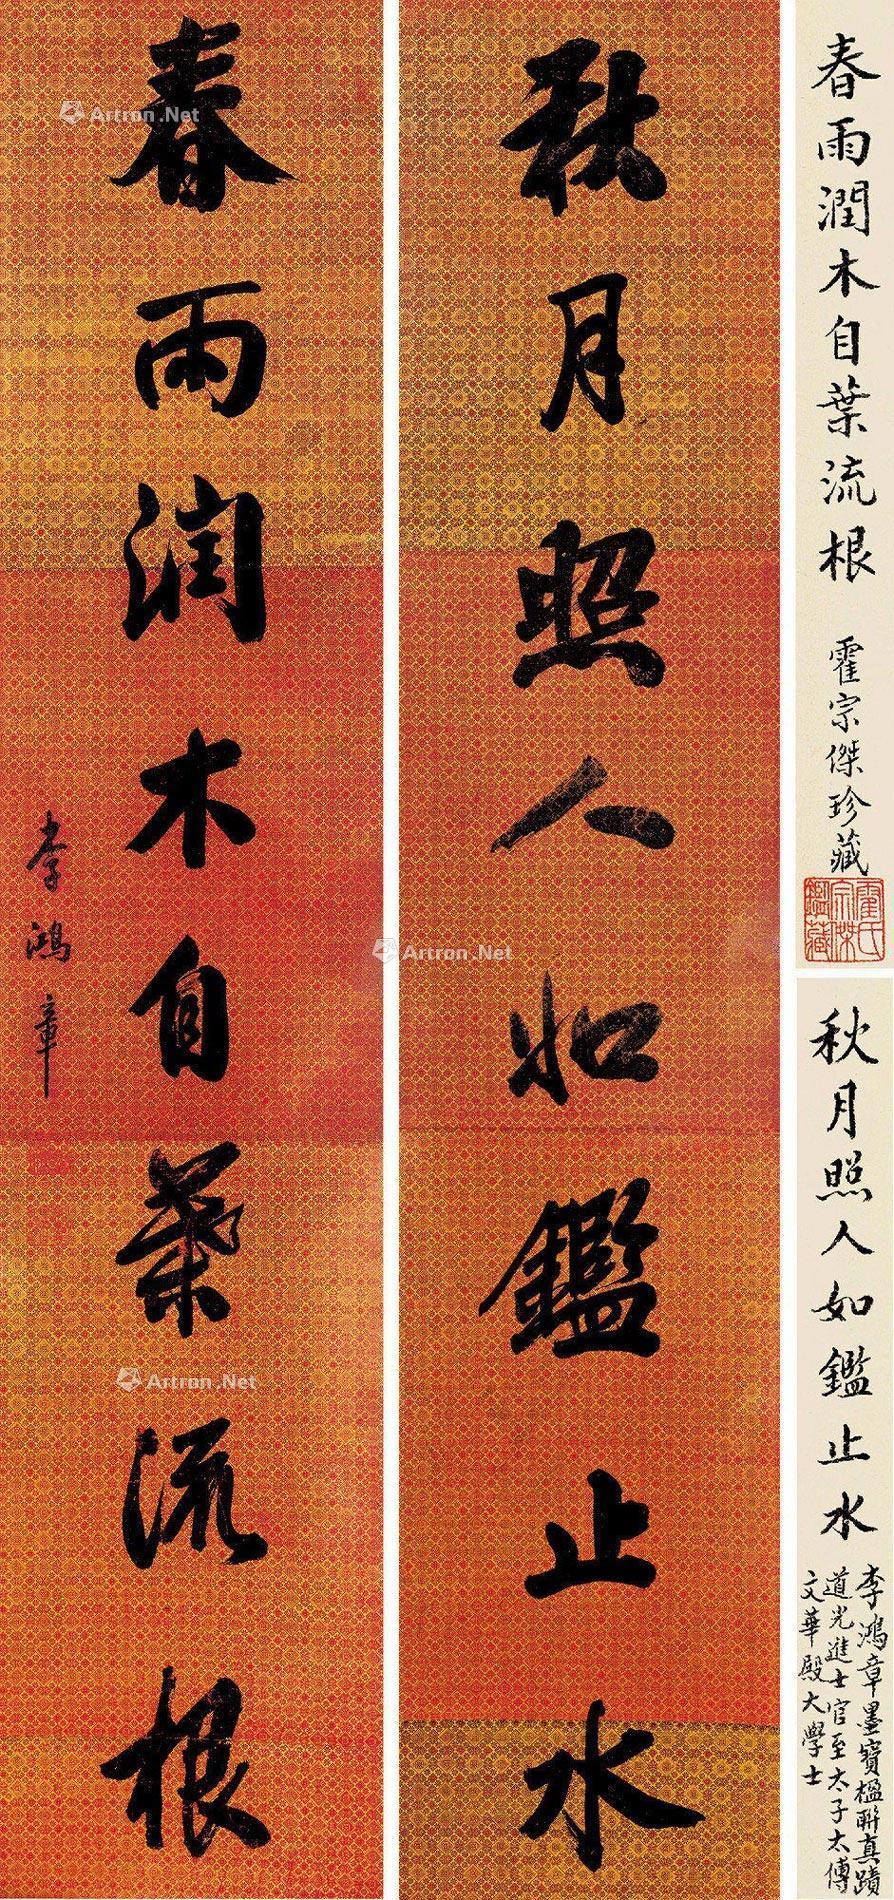 秋月照人如鑑止水
春雨潤木自葉流根
李鴻章
春雨潤木自葉流根 霍宗傑珍藏
霍氏宗傑鑑藏
秋月照人如鑑止水
李鴻章墨寶楹聯真蹟
道光進士官至太子太傅
文華殿大學士
Artron.Net
Artron.Net
Artron.Net